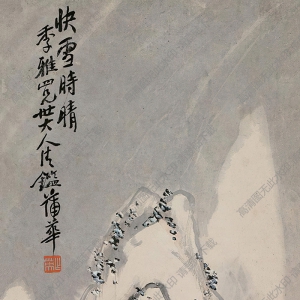 快雪時晴
季雅四兄世大人法鑑蒲華